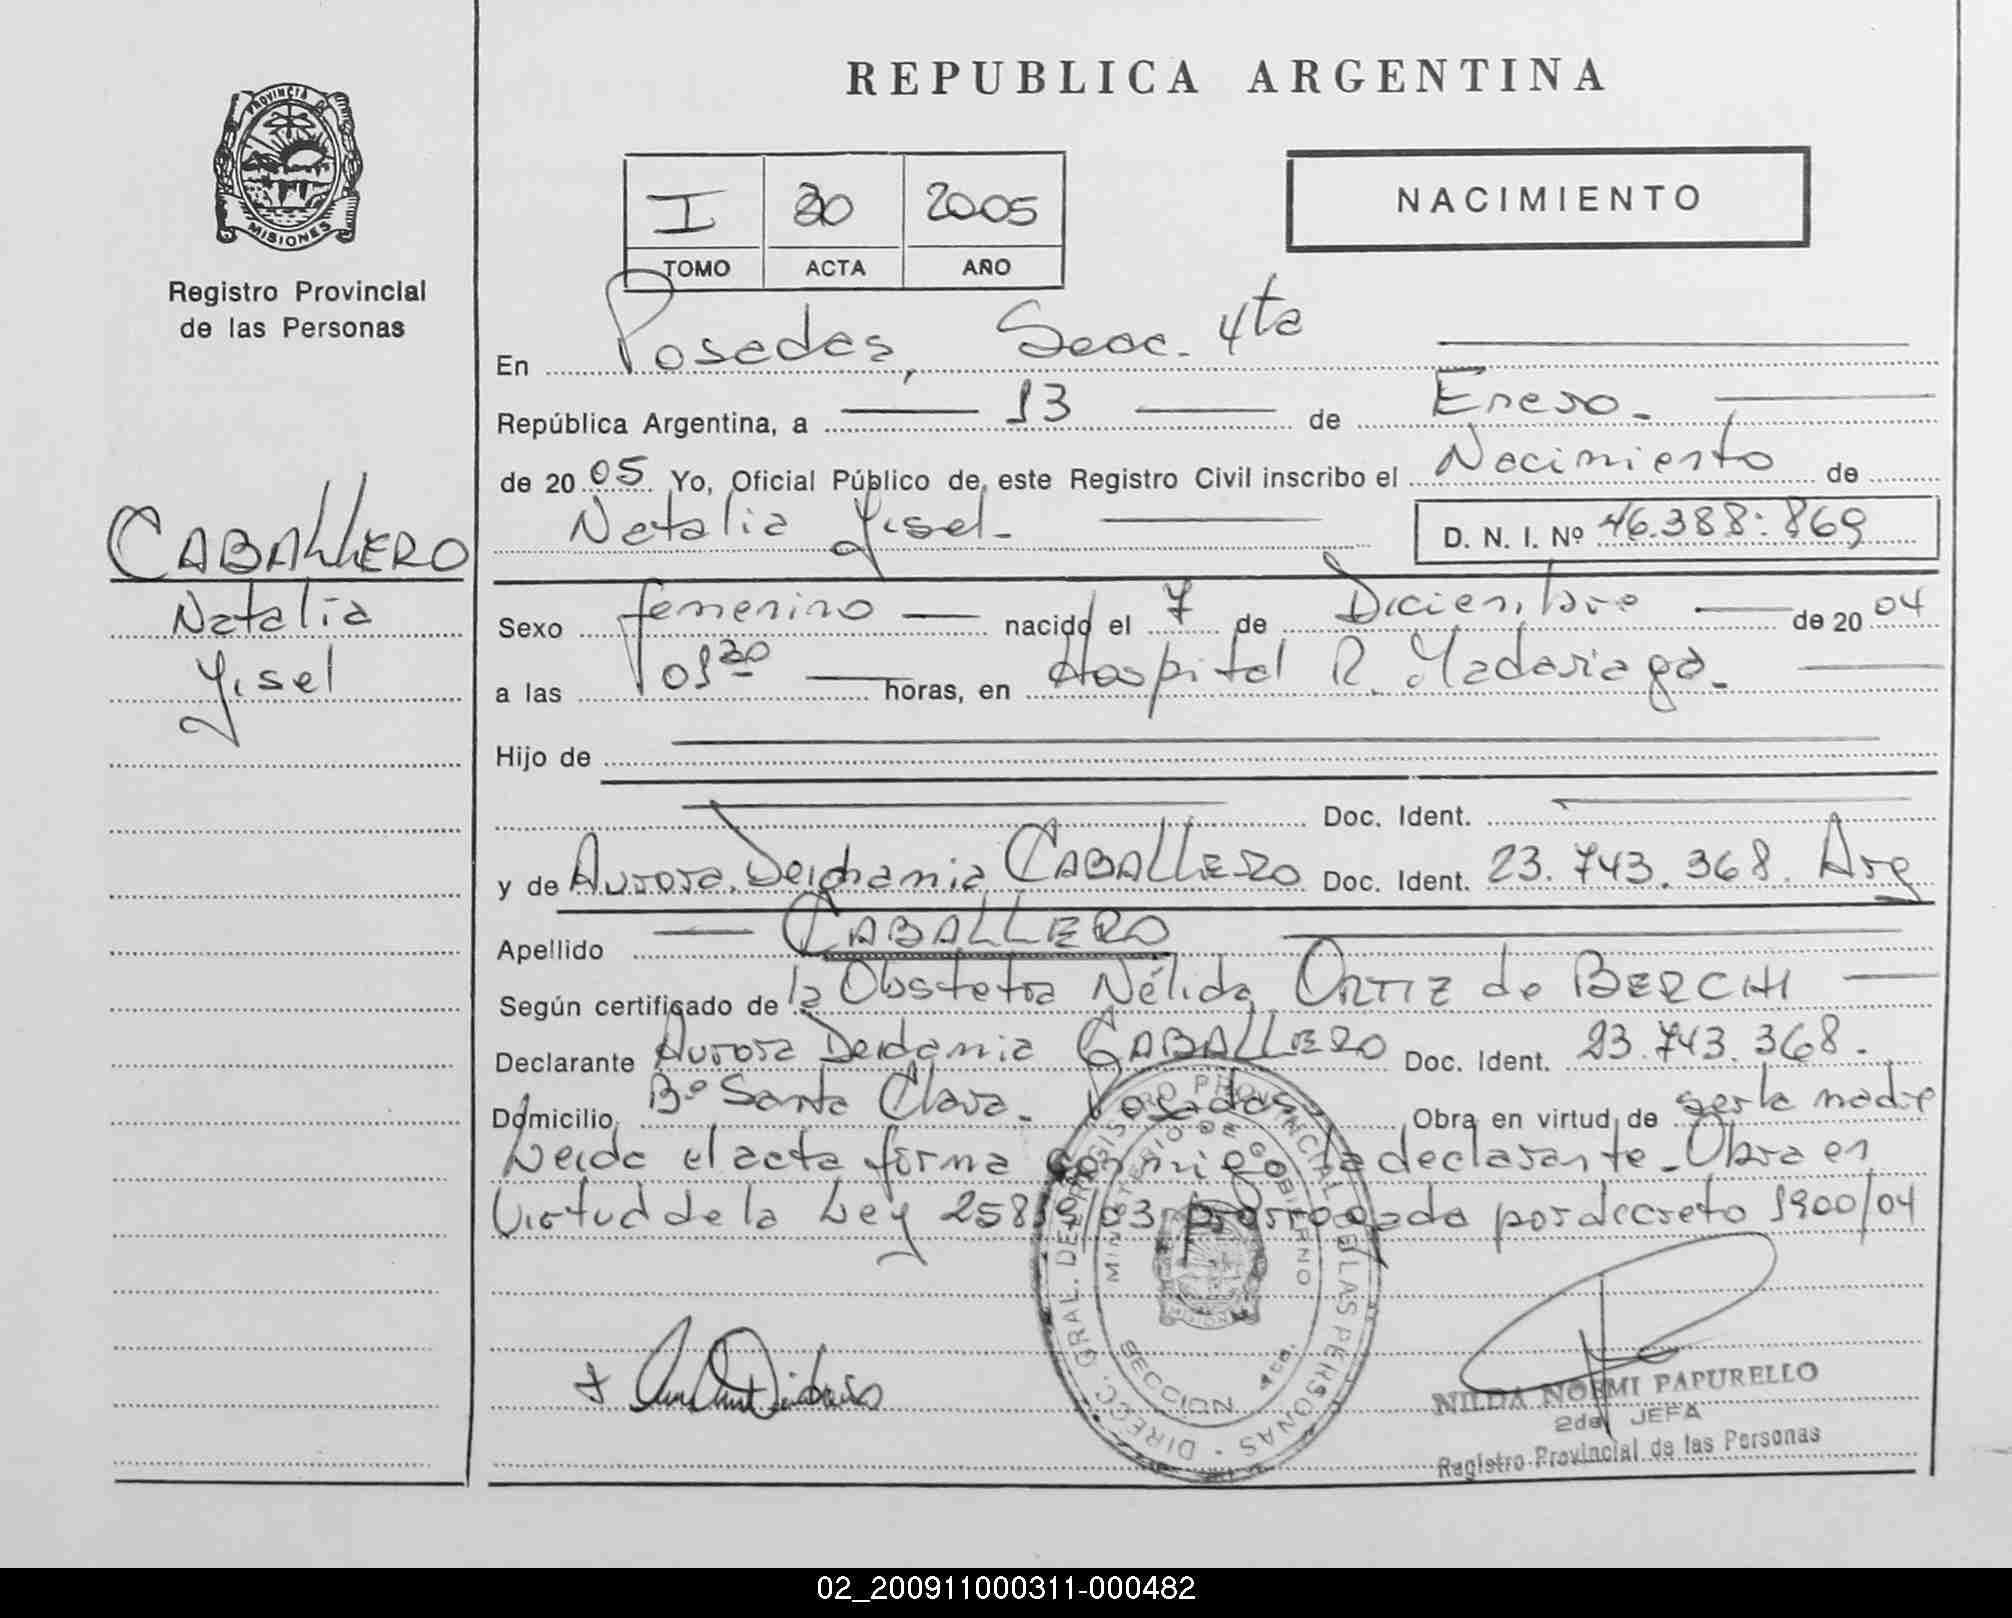 REPUBLICA ARGENTINA
PROVINCIA DE
MISIONES
Registro Provincial
de las Personas
I 30 2005
TOMO ACTA AÑO
NACIMIENTO
En Posadas, Secc. 4ta
República Argentina, a 13 de Enero.
de 20 05 Yo, Oficial Público de este Registro Civil inscribo el Nacimiento de
Natalia Yisel. D. N. I. Nº 46.388.869
CABALLERO
Natalia
Yisel
Sexo femenino nacido el 7 de Diciembre de 20 04
a las 01 30 horas, en Hospital R. Madariaga.
Hijo de
Doc. Ident.
y de Aurora Deidamia CABALLERO Doc. Ident. 23.743.368. Arg
Apellido CABALLERO
Según certificado de la Obstetra Nélida ORTIZ de BERCHI
Declarante Aurora Deidamia CABALLERO Doc. Ident. 23.743.368.
Domicilio Bº Santa Clara. Posadas Obra en virtud de ser la madre
Leida el acta firma conmigo la declarante. Obra en
Virtud de la Ley 25819/03 prorrogada por decreto 1900/04
DIRECC. GRAL. DE REGISTRO PROVINCIAL DE LAS PERSONAS
MINISTERIO DE GOBIERNO
SECCION 4ta.
NILDA NOEMI PAPURELLO
2da JEFA
Registro Provincial de las Personas
02_200911000311-000482